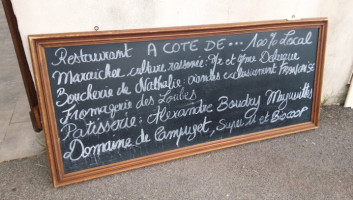 Restaurant A COTE DE ... 100% Local
Maraicher culture raisonnée: Mr et Mme Deleuque
Boucherie de Nathalie: viandes exclusivement FRANCAISE
Fromagerie des Loubes
Patisserie: Alexandre Boudry Mazauilles
Domaine de Campuget, Super U et Biocoop